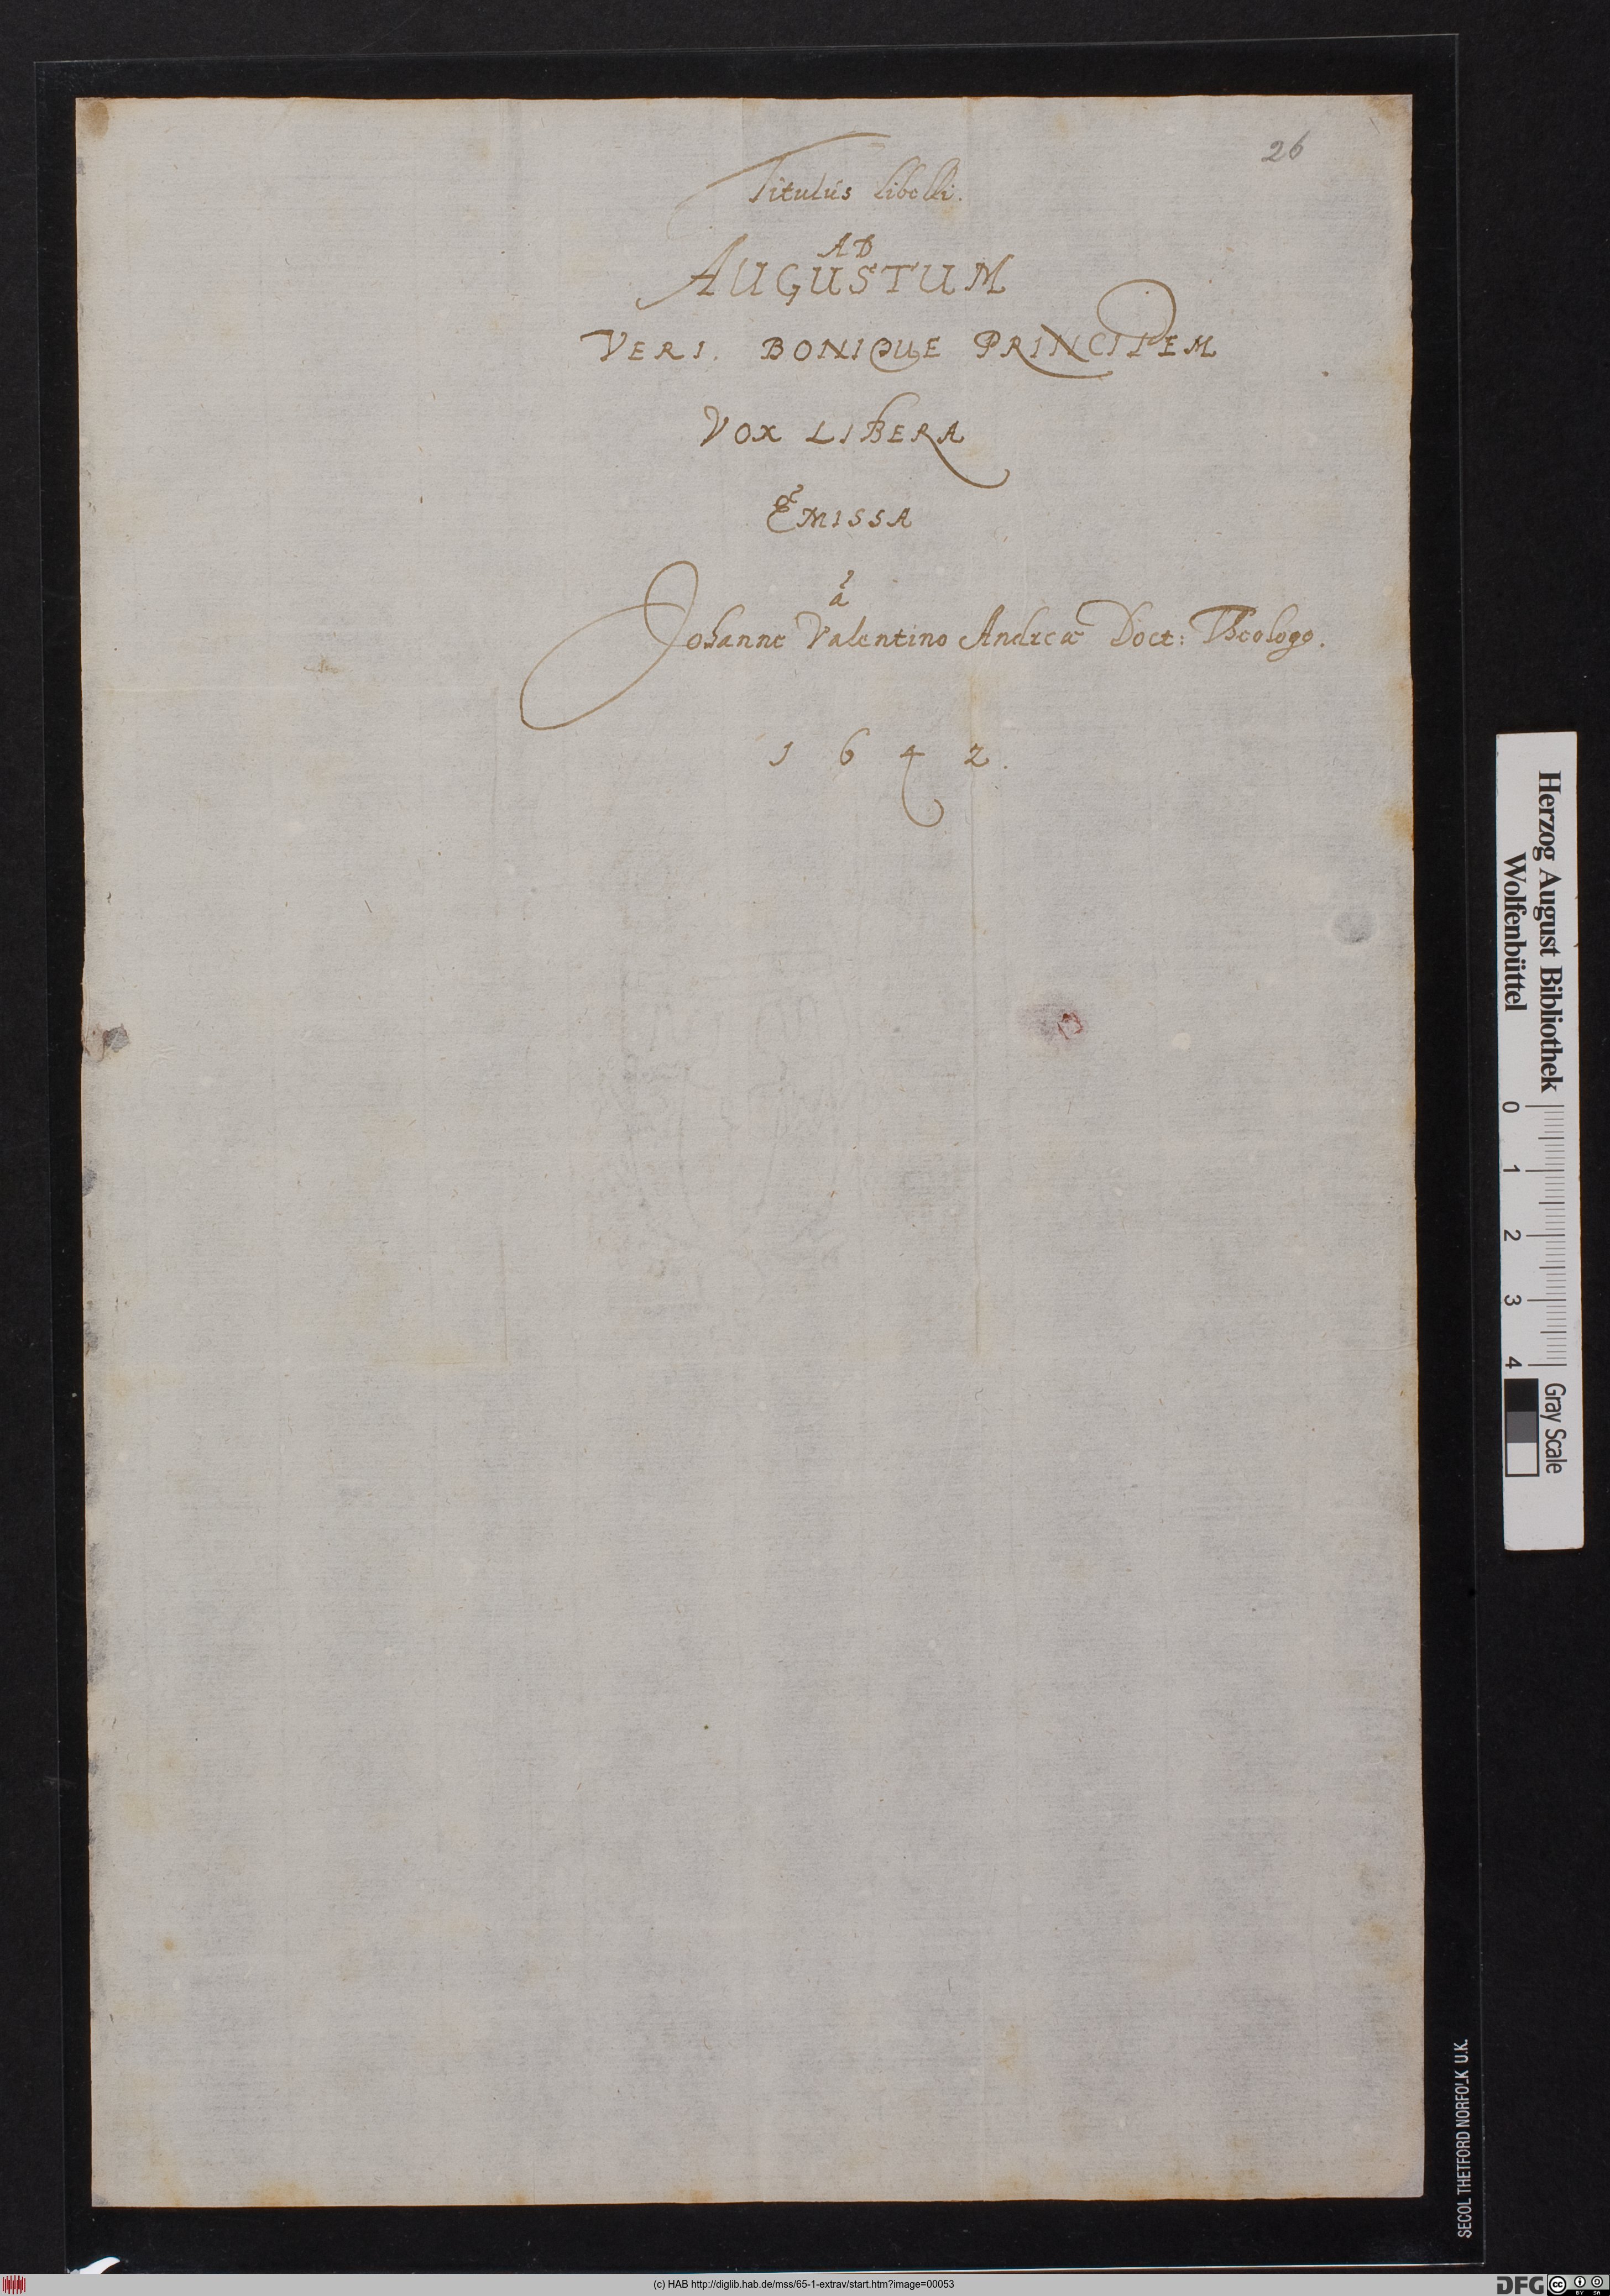 26
Titulus libelli.
AD
AUGUSTUM
VERI. BONIQUE PRINCIPEM
VOX LIBERA
EMISSA
à
Johanne Valentino Andreæ Doct: Theologo.
1 6 4 2.
Herzog August Bibliothek
Wolfenbüttel
0 1 2 3 4
Gray Scale
SECOL THETFORD NORFOLK U.K.
(c) HAB http://diglib.hab.de/mss/65-1-extrav/start.htm?image=00053
DFG
cc
BY SA